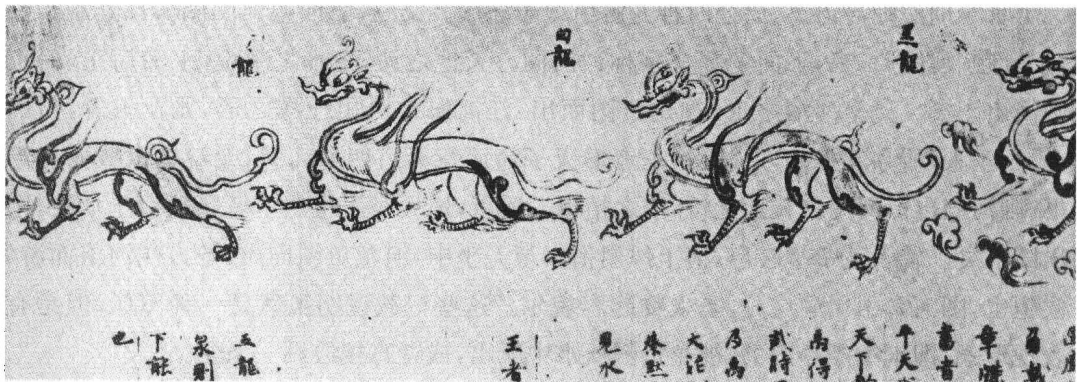 黑龍
白龍
龍
章
書者
平天
天下
禹得
武時
乃禹
大治
黙
見水
王者
五龍
泉則
下能
也